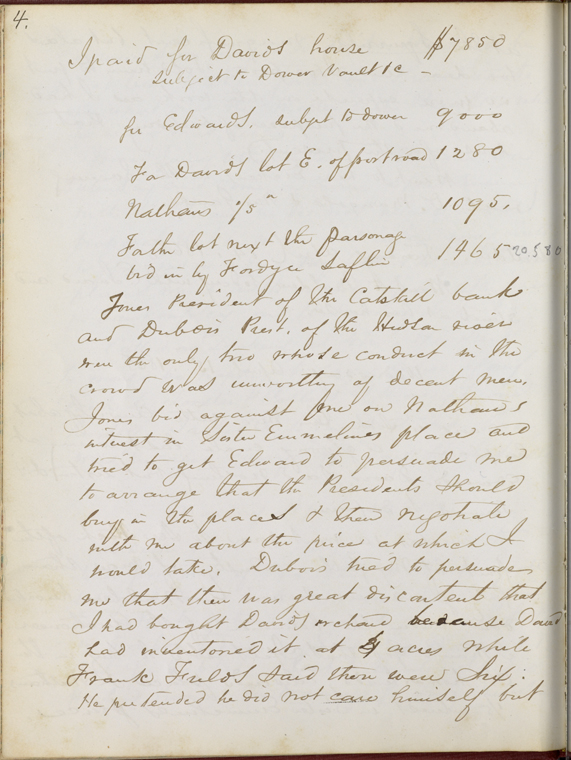 4.
I paid for Davids house $7850
subject to Dower Vault &c –
for Edwards. subject to dower 9000
For Davids lot E. of post road 1280
Nathans 1095.
Fath. lot next the Parsonage 1465 20,580
bid in by Fordyce Laflin
Jones President of the Catskill bank
and Dubois Prest. of the Hudson river
were the only two whose conduct in the
crowd was unworthy of decent men.
Jones bid against me on Nathans
interest in Sister Emmelines place and
tried to get Edward to persuade me
to arrange that the Presidents should
buy in the places & then negotiate
with me about the price at which I
would take. Dubois tried to persuade
me that there was great discontent that
I had bought Davids orchard because David
had inventoried it at acres while
Frank Fields said there were Six.
He pretended he did not care himself but